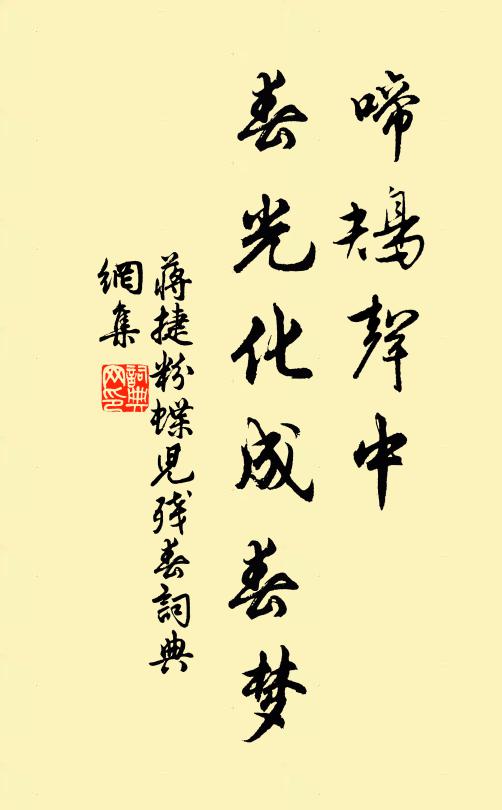 啼鴂聲中
春光化成春梦
蔣捷粉蝶児残春詞典
網集
詞典
网印